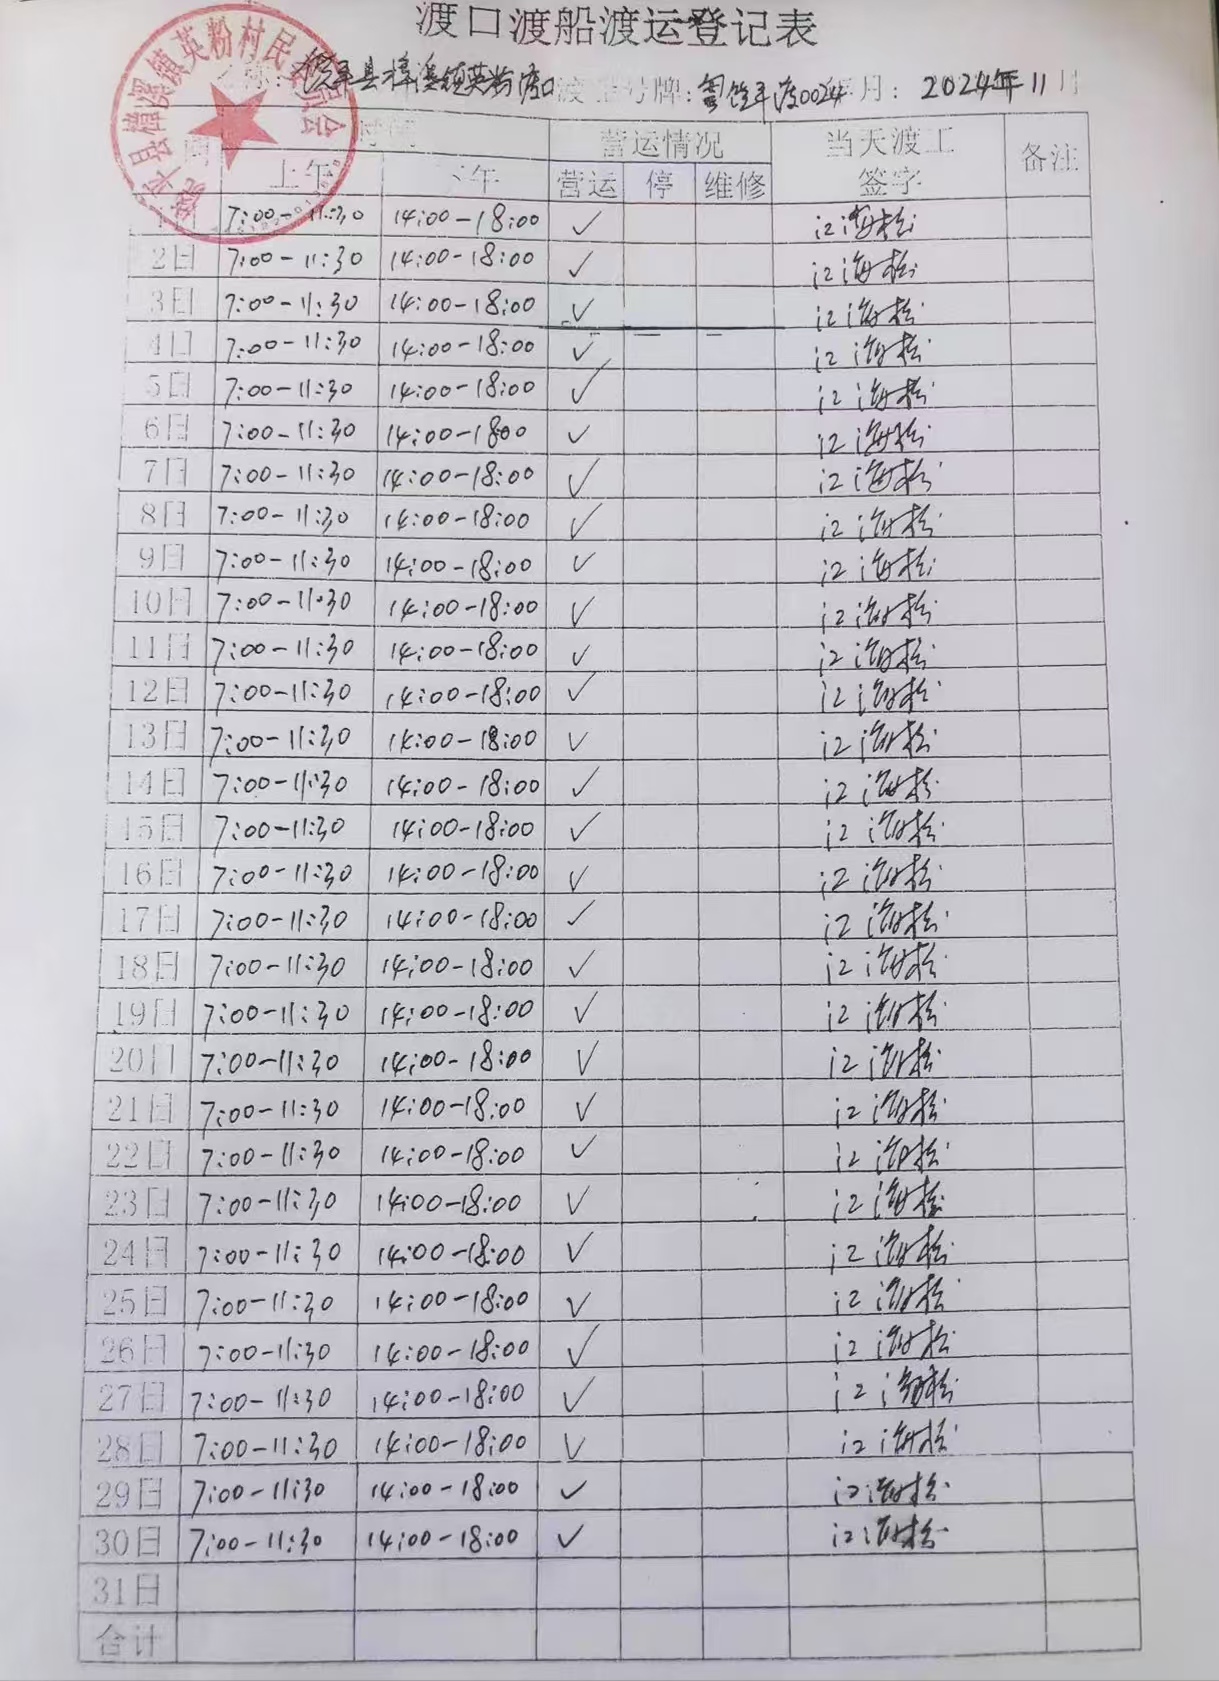 渡口渡船渡运登记表
名称: 饶平县樟溪镇英粉渡口 渡 号牌: 粤饶平渡0024 年月: 2024年11月
饶平县樟溪镇英粉村民委员会
时间 营运情况 当天渡工签字 备注
上午 下午 营运 停 维修
1日 7:00-11:30 14:00-18:00 ✓ 江海松
2日 7:00-11:30 14:00-18:00 ✓ 江海松
3日 7:00-11:30 14:00-18:00 ✓ 江海松
4日 7:00-11:30 14:00-18:00 ✓ 江海松
5日 7:00-11:30 14:00-18:00 ✓ 江海松
6日 7:00-11:30 14:00-1800 ✓ 江海松
7日 7:00-11:30 14:00-18:00 ✓ 江海松
8日 7:00-11:30 14:00-18:00 ✓ 江海松
9日 7:00-11:30 14:00-18:00 ✓ 江海松
10日 7:00-11:30 14:00-18:00 ✓ 江海松
11日 7:00-11:30 14:00-18:00 ✓ 江海松
12日 7:00-11:30 14:00-18:00 ✓ 江海松
13日 7:00-11:30 14:00-18:00 ✓ 江海松
14日 7:00-11:30 14:00-18:00 ✓ 江海松
15日 7:00-11:30 14:00-18:00 ✓ 江海松
16日 7:00-11:30 14:00-18:00 ✓ 江海松
17日 7:00-11:30 14:00-18:00 ✓ 江海松
18日 7:00-11:30 14:00-18:00 ✓ 江海松
19日 7:00-11:30 14:00-18:00 ✓ 江海松
20日 7:00-11:30 14:00-18:00 ✓ 江海松
21日 7:00-11:30 14:00-18:00 ✓ 江海松
22日 7:00-11:30 14:00-18:00 ✓ 江海松
23日 7:00-11:30 14:00-18:00 ✓ 江海松
24日 7:00-11:30 14:00-18:00 ✓ 江海松
25日 7:00-11:30 14:00-18:00 ✓ 江海松
26日 7:00-11:30 14:00-18:00 ✓ 江海松
27日 7:00-11:30 14:00-18:00 ✓ 江海松
28日 7:00-11:30 14:00-18:00 ✓ 江海松
29日 7:00-11:30 14:00-18:00 ✓ 江海松
30日 7:00-11:30 14:00-18:00 ✓ 江海松
31日
合计